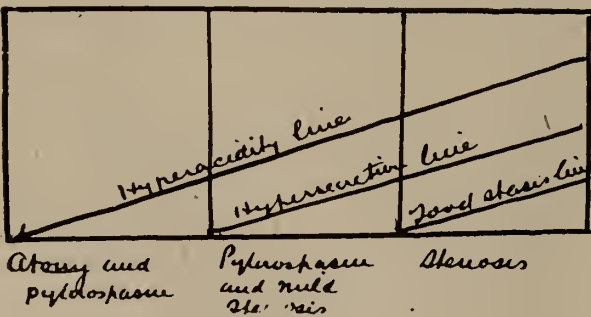 Hyperacidity line
Hypersecretion line
Food stasis line
Atony and
pylorospasm
Pylorospasm
and mild
Stenosis